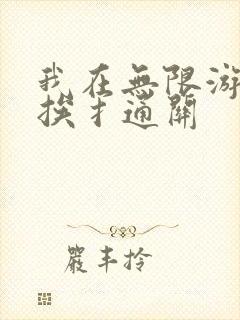 我在無限游
挨扌通關
嚴丰拎